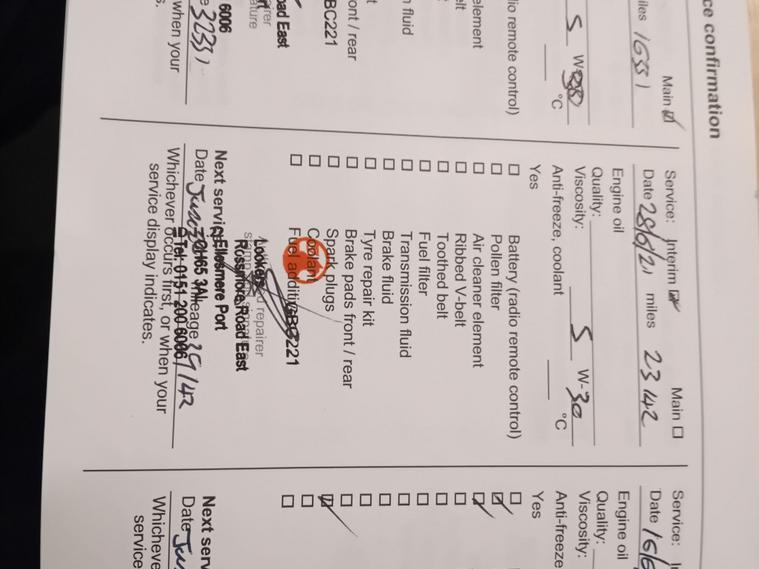 ce confirmation
Main
iles 16551
S W
°C
dio remote control)
element
elt
n fluid
t
ont / rear
BC221
oad East
6006
e 32351
when your
s.
Service: Interim Main
Date 28/6/21 miles 23142
Engine oil
Quality:
Viscosity: S W-30
Anti-freeze, coolant °C
Yes
Battery (radio remote control)
Pollen filter
Air cleaner element
Ribbed V-belt
Toothed belt
Fuel filter
Transmission fluid
Brake fluid
Tyre repair kit
Brake pads front / rear
Spark plugs
Coolant
Fuel additive BC221
Lookers
Rossmore Road East
Ellesmere Port
CH65 3AL
Tel: 0151 200 6006
repairer
Next service:
Date June Mileage 39142
Whichever occurs first, or when your
service display indicates.
Service: I
Date 16/6
Engine oil
Quality:
Viscosity:
Anti-freeze
Yes
Next serv
Date Ju
Whicheve
service